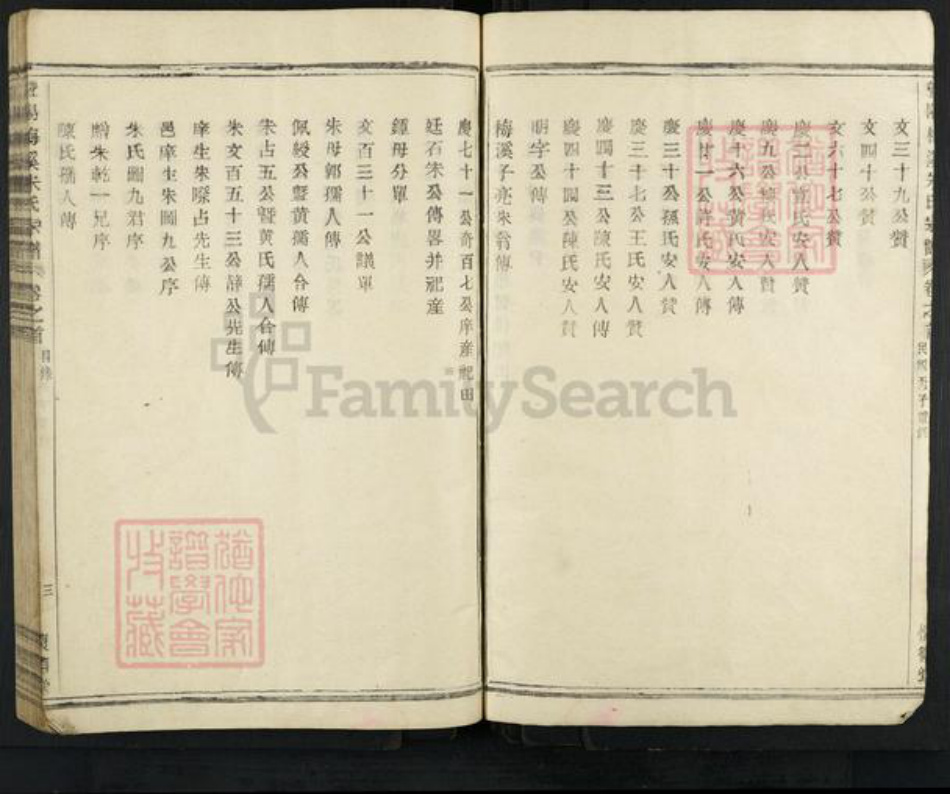 文三十九公贊
文四十公贊
文六十七公贊
慶二公曹氏安人贊
慶九公 氏安人贊
慶十六公黃氏安人傳
慶廿一公許氏安人傳
慶三十公孫氏安人贊
慶三十七公王氏安人贊
慶四十三公陳氏安人傳
慶四十四公陳氏安人贊
明字公傳
梅溪子亮朱翁傳
慶七十一公奇百七公庠產祀田
廷石朱公傳畧并祀產
鍾母分單
文百三十一公議單
朱母郭孺人傳
佩綬公暨黃孺人合傳
朱占五公暨黄氏孺人合傳
朱文百五十三公靜公先生傳
庠生朱 占先生傳
邑庠生朱圖九公序
朱氏圖九君序
贈朱乾一兄序
陳氏孺人傳
陽梅溪朱氏宗譜 卷之首
目錄
三
民國丙子重修
譜學會
收藏
FamilySearch